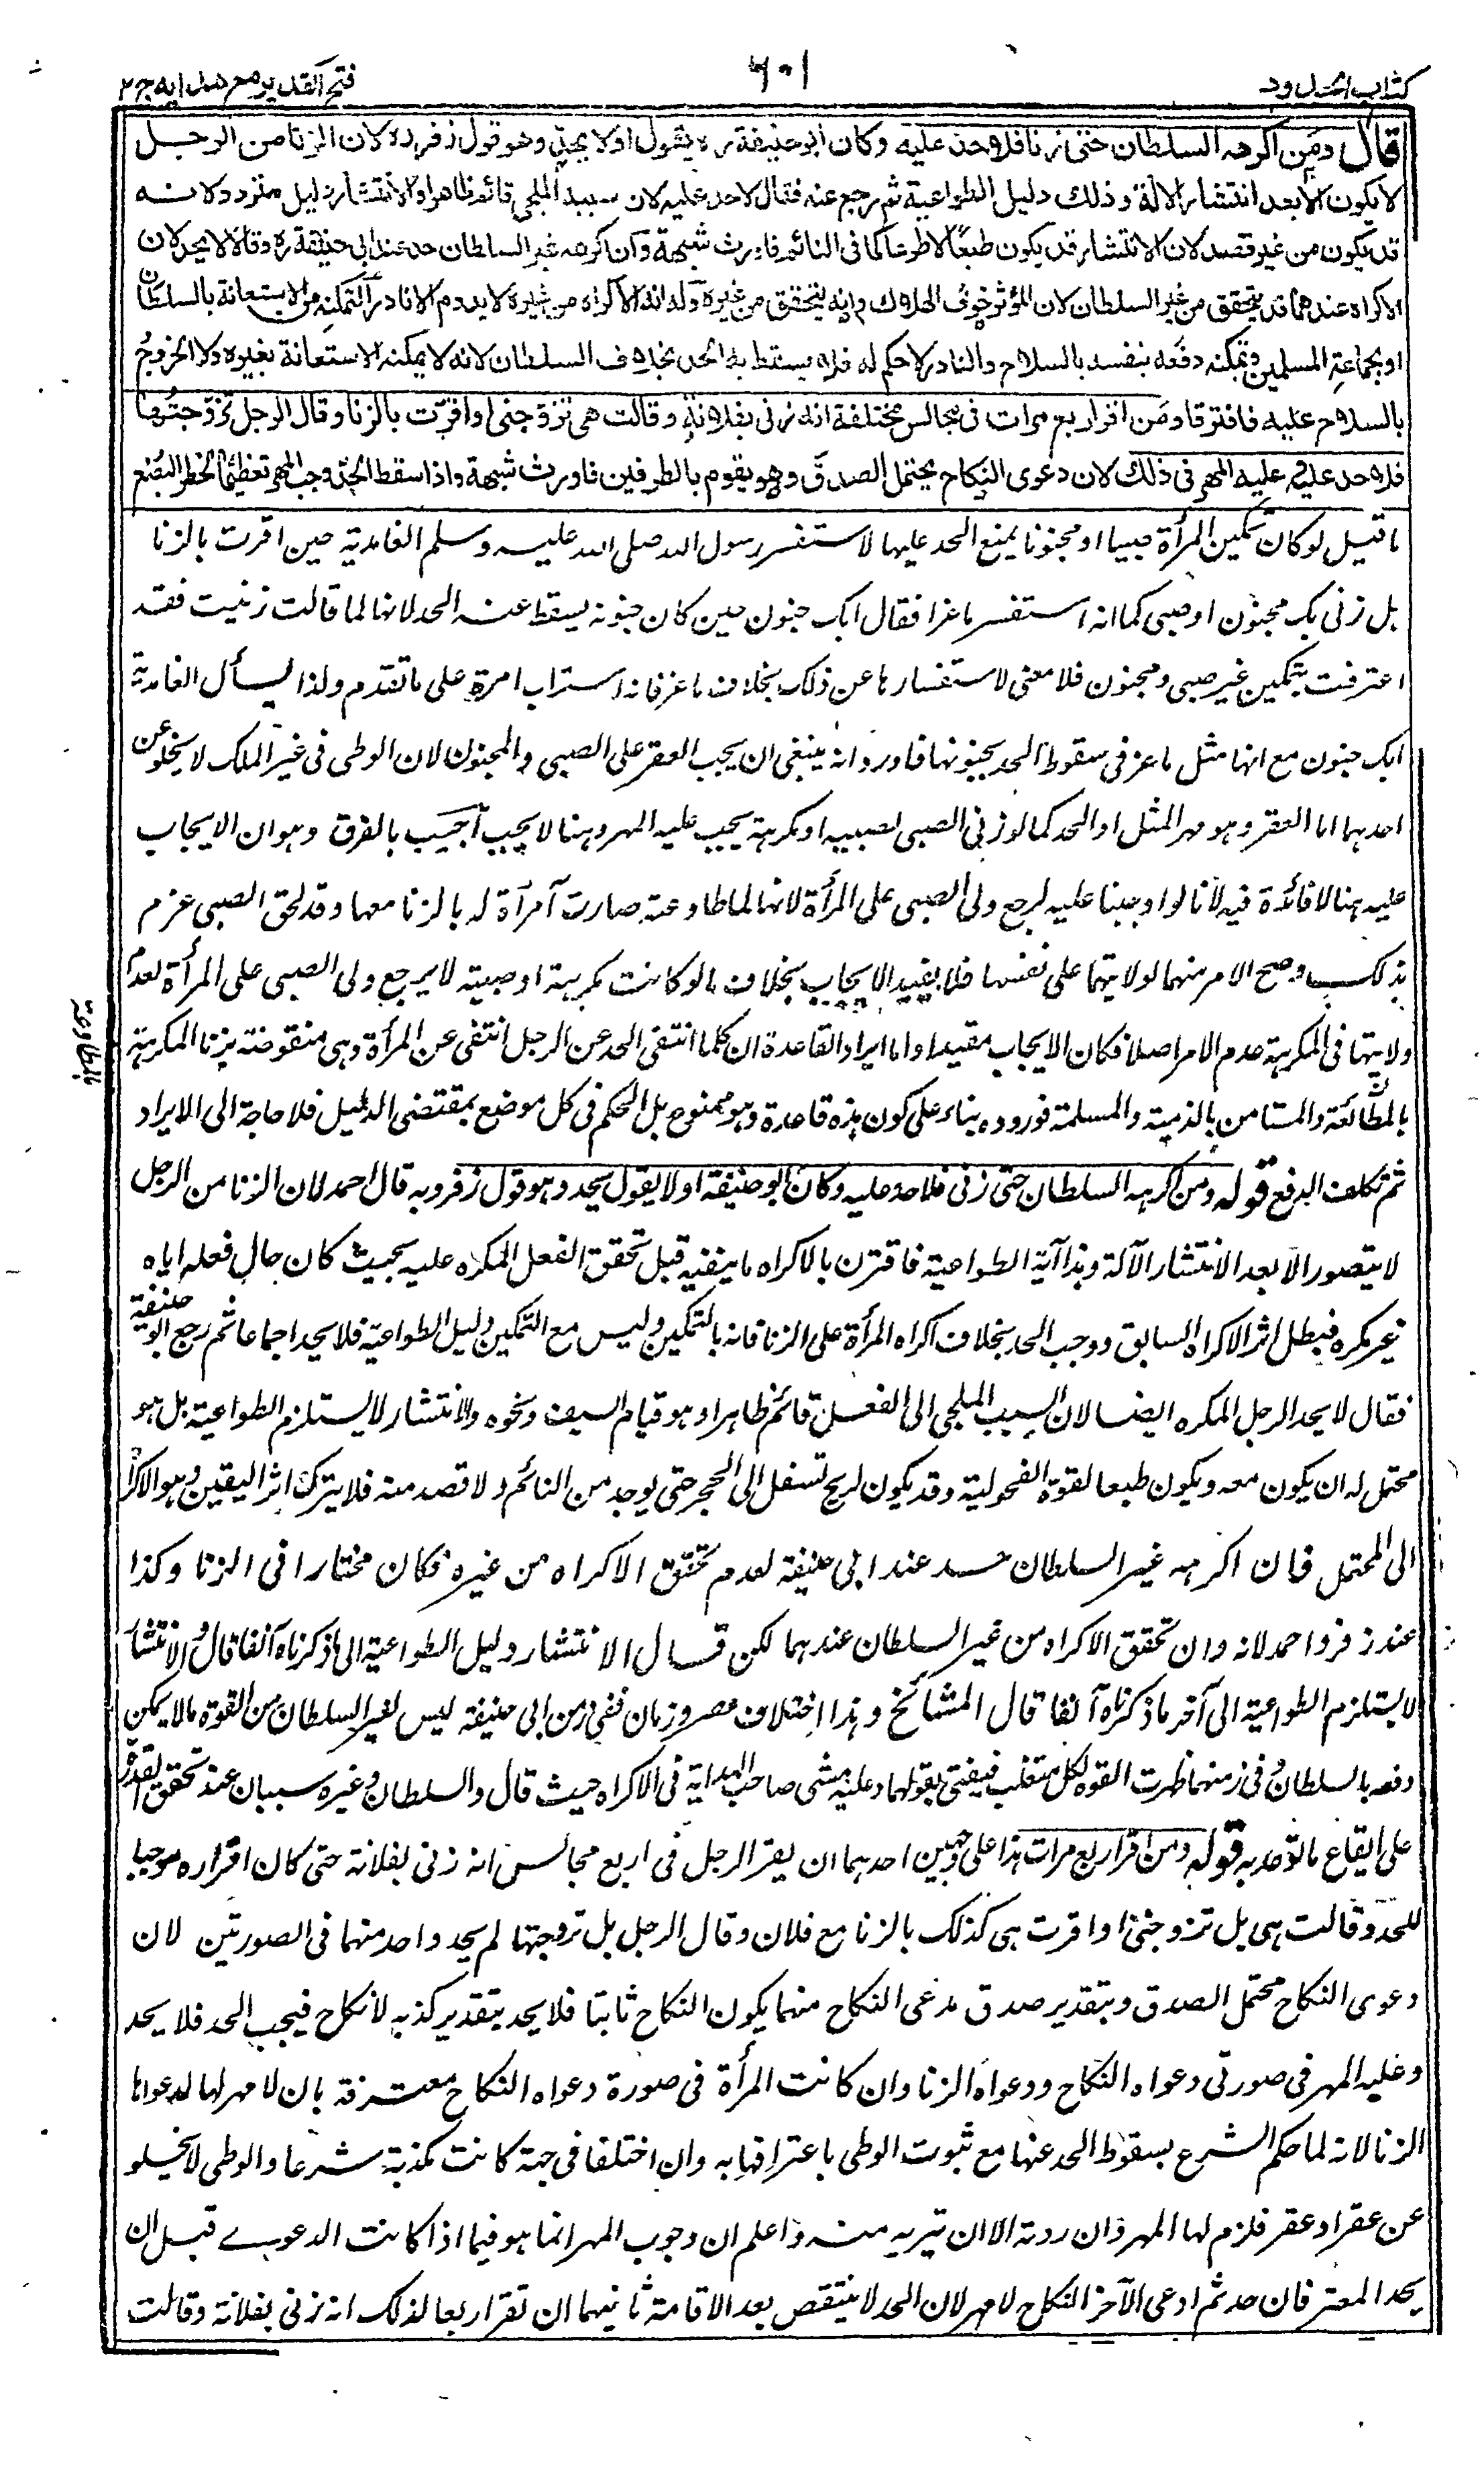 كتاب الحدود
٦٠١
فتح القدير مع هدايه ج ٢
قال ومن اكرهه السلطان حتى زنا فلا حد عليه وكان ابو حنيفة ره يقول اولا يحد وهو قول زفر ره لان الزنا من الرجل
لا يكون الا بعد انتشار الالة وذلك دليل الطواعية ثم رجع عنه فقال لا حد عليه لان سببه الملجى قائم ظاهرا والانتشار دليل متردد لانه
قد يكون من غير قصد لان الانتشار قد يكون طبعا لا طوعا كما في النائم فاورث شبهة وان اكرهه غير السلطان حد عند ابي حنيفة ره وقالا لا يحد لان
الاكراه عندهما قد يتحقق من غير السلطان لان المؤثر خوف الهلاك وانه يتحقق من غيره وله ان الاكراه من غيره لا يدوم الا نادرا لتمكنه من الاستعانة بالسلطان
او بجماعة المسلمين ويمكنه دفعه بنفسه بالسلاح والنادر لا حكم له فلا يسقط به الحد بخلاف السلطان لانه لا يمكنه الاستعانة بغيره ولا الخروج
بالسلاح عليه فافترقا ومن اقر اربع مرات في مجالس مختلفة انه زنى بفلانة وقالت هي تزوجني او اقرت بالزنا وقال الرجل تزوجتها
فلا حد عليه وعليه المهر في ذلك لان دعوى النكاح يحتمل الصدق وهو يقوم بالطرفين فاورث شبهة واذا سقط الحد وجب المهر تعظيما لخطر البضع
ما قيل لو كان تمكين المرأة صبيا او مجنونا يمنع الحد عليها لاستفسر رسول الله صلى الله عليه وسلم الغامدية حين اقرت بالزنا
هل زنى بك مجنون او صبي كما انه استفسر ماعزا فقال ابك جنون حين كان جنونه يسقط عنه الحد لانها لما قالت زنيت فقد
اعترفت بتمكين غير صبي ومجنون فلا معنى لاستفسارها عن ذلك بخلاف ماعز فانه استراب امره على ما تقدم ولذا لم يسأل الغامدية
ابك جنون مع انها مثل ماعز في سقوط الحد بجنونها فاورد انه ينبغي ان يجب العقر على الصبي والمجنون لان الوطى في غير الملك لا يخلو عن
احدهما اما العقر وهو مهر المثل او الحد كما لو زنى الصبي بصبية او مكرهة يجب عليه المهر وهنا لا يجب أجيب بالفرق وهو ان الايجاب
عليه هنا لا فائدة فيه لأنا لو اوجبنا عليه لرجع ولى الصبي على المرأة لانها لما طاوعته صارت آمرة له بالزنا معها وقد لحق الصبي غرم
بذلك وصح الامر منها لولايتها على نفسها فلا يفيد الايجاب بخلاف ما لو كانت مكرهة او صبية لا يرجع ولى الصبي على المرأة لعدم
ولايتها في المكرهة عدم الامر اصلا فكان الايجاب مفيدا واما ايراد القاعدة ان كلما انتفى الحد عن الرجل انتفى عن المرأة وهي منقوضة بزنا المكره
بالمطائعة والمستامن بالذمية والمسلمة فوروده بناء على كون هذه قاعدة وهو ممنوع بل الحكم في كل موضع بمقتضى الدليل فلا حاجة الى الايراد
ثم تكلف الدفع قوله ومن اكرهه السلطان حتى زنى فلا حد عليه وكان ابو حنيفة اولا يقول يحد وهو قول زفر وبه قال احمد لان الزنا من الرجل
لا يتصور الا بعد الانتشار الآلة وهذا آية الطواعية فاقترن بالاكراه ما ينفيه قبل تحقق الفعل المكره عليه بحيث كان حال فعله اياه
غير مكره فبطل اثر الاكراه السابق ووجب الحد بخلاف اكراه المرأة على الزنا فانه بالتمكين وليس مع التمكين دليل الطواعية فلا يحد اجماعا ثم رجع ابو حنيفة
فقال لا يحد الرجل المكره ايضا لان السبب الملجى الى الفعل قائم ظاهرا وهو قيام السيف ونحوه والانتشار لا يستلزم الطواعية بل هو
محتمل له ان يكون معه ويكون طبعا لقوة الفحولية وقد يكون لريح تسفل الى الحجر حتى يوجد من النائم ولا قصد منه فلا يترك اثر اليقين وهو الاكراه
الى المحتمل فان اكرهه غير السلطان حد عند ابي حنيفة لعدم تحقق الاكراه من غيره فكان مختارا في الزنا وكذا
عند زفر واحمد لانه وان تحقق الاكراه من غير السلطان عندهما لكن قال الانتشار دليل الطواعية الى ما ذكرناه آنفا قال والانتشار
لا يستلزم الطواعية الى آخر ما ذكرناه آنفا قال المشائخ وهذا اختلاف عصر وزمان ففي زمن ابي حنيفة ليس لغير السلطان من القوة ما لا يمكن
دفعه بالسلطان وفي زمنهما ظهرت القوة لكل متغلب فيفتى بقولهما وعليه مشى صاحب الهداية في الاكراه حيث قال والسلطان وغيره سيان عند تحقق القدرة
على ايقاع ما توعد به قوله ومن اقر اربع مرات هذا على وجهين احدهما ان يقر الرجل في اربع مجالس انه زنى بفلانة حتى كان اقراره موجبا
للحد وقالت هي بل تزوجني او اقرت هي كذلك بالزنا مع فلان وقال الرجل بل تزوجتها لم يحد واحد منهما في الصورتين لان
دعوى النكاح محتمل الصدق وبتقدير صدق مدعى النكاح منهما يكون النكاح ثابتا فلا يحد بتقدير كذبه لا نكاح فيجب الحد فلا يحد
وعليه المهر في صورتي دعواه النكاح ودعواه الزنا وان كانت المرأة في صورة دعواه النكاح معترفة بان لا مهر لها لدعواها
الزنا لانه لما حكم الشرع بسقوط الحد عنها مع ثبوت الوطى باعترافها به وان اختلفا في جهة كانت مكذبة شرعا والوطى لا يخلو
عن عقر او عقر فلزم لها المهر وان ردته الا ان تبريه منه واعلم ان وجوب المهر انما هو فيما اذا كانت الدعوى قبل ان
يحد المعترف فان حد ثم ادعى الآخر النكاح لا مهر لان الحد لا ينتقض بعد الاقامة ثانيهما ان تقر اربعا لذلك انه زنى بفلانة وقالت